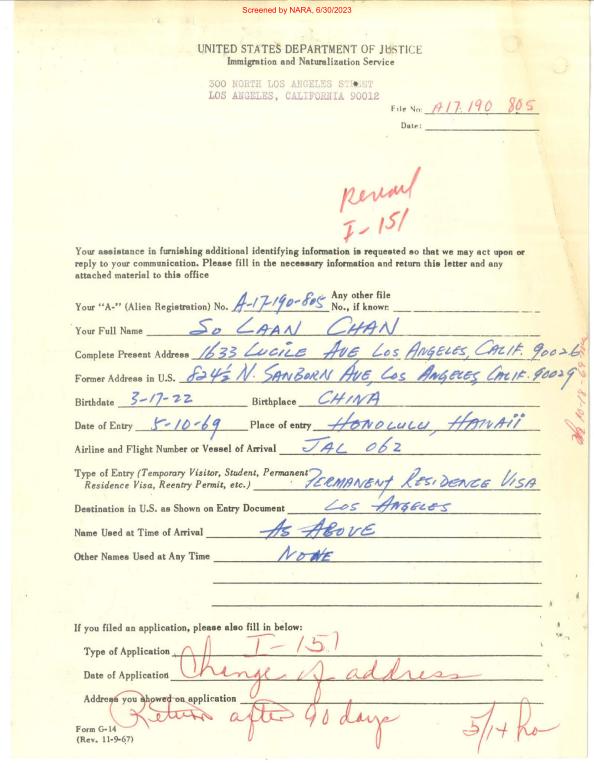 Screened by NARA, 6/30/2023
UNITED STATES DEPARTMENT OF JUSTICE
Immigration and Naturalization Service
300 NORTH LOS ANGELES STREET
LOS ANGELES, CALIFORNIA 90012
File No: A17 190 805
Date:
I-151
Your assistance in furnishing additional identifying information is requested so that we may act upon or
reply to your communication. Please fill in the necessary information and return this letter and any
attached material to this office
Your "A-" (Alien Registration) No. A-17-190-805 Any other file No., if known:
Your Full Name SO LAAN CHAN
Complete Present Address 1633 LUCILE AVE LOS ANGELES, CALIF. 90026
Former Address in U.S. 824½ N. SANBORN AVE, LOS ANGELES, CALIF. 90029
Birthdate 3-17-22 Birthplace CHINA
Date of Entry 5-10-69 Place of entry HONOLULU, HAWAII
Airline and Flight Number or Vessel of Arrival JAL 062
Type of Entry (Temporary Visitor, Student, Permanent
Residence Visa, Reentry Permit, etc.) PERMANENT RESIDENCE VISA
Destination in U.S. as Shown on Entry Document LOS ANGELES
Name Used at Time of Arrival AS ABOVE
Other Names Used at Any Time NONE
If you filed an application, please also fill in below:
Type of Application I-151
Date of Application Change of address
Address you showed on application
Return after 90 days
5/14
Form G-14
(Rev. 11-9-67)
10-18-69